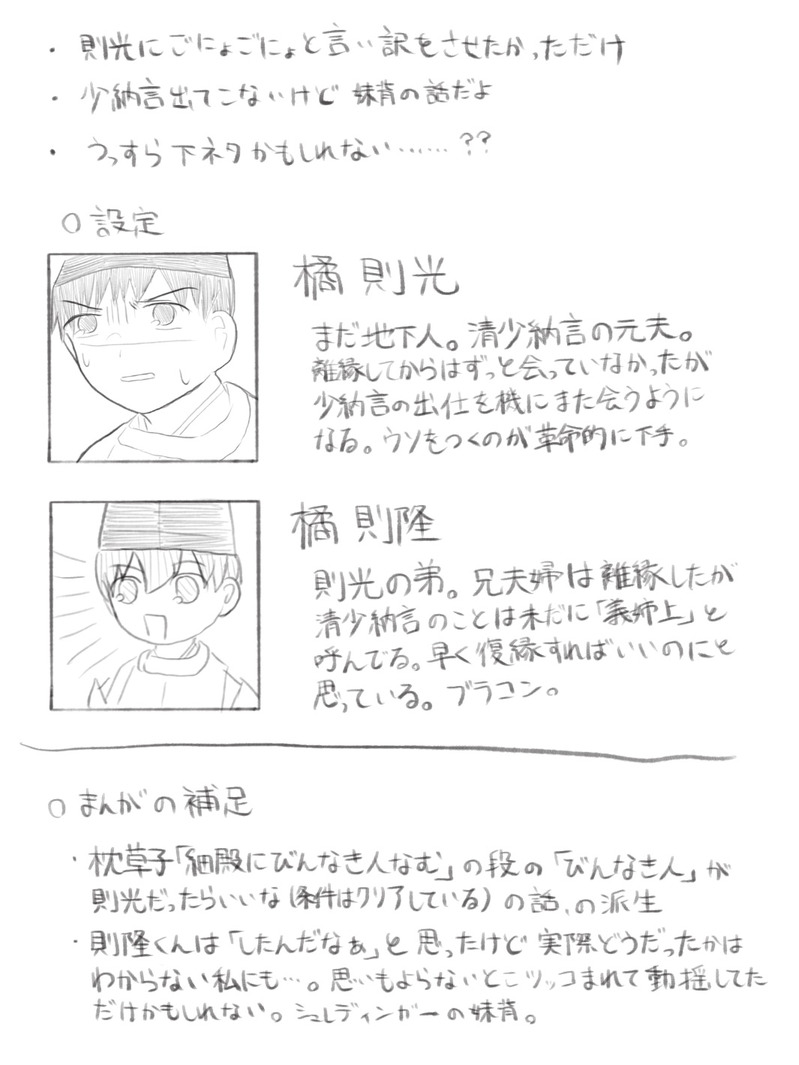 ・則光にごにょごにょと言い訳をさせたかっただけ
・少納言出てこないけど 妹背の話だよ
・うっすら下ネタかもしれない……??
○設定
橘 則光
まだ地下人。清少納言の元夫。
離縁してからはずっと会っていなかったが
少納言の出仕を機にまた会うように
なる。ウソをつくのが革命的に下手。
橘 則隆
則光の弟。兄夫婦は離縁したが
清少納言のことは未だに「義姉上」と
呼んでる。早く復縁すればいいのにと
思っている。ブラコン。
○まんがの補足
・枕草子「細殿にびんなき人なむ」の段の「びんなき人」が
則光だったらいいな(条件はクリアしている)の話、の派生
・則隆くんは「したんだなぁ」と思ったけど 実際どうだったかは
わからない私にも…。思いもよらないとこツッコまれて動揺してた
だけかもしれない。シュレディンガーの妹背。